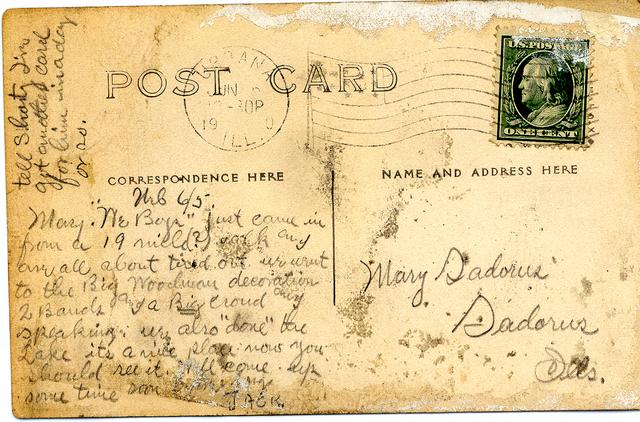 tell Shorty I'm
got another card
for him in a day
or so.
POST CARD
URBANA
JUN 6
30P
19 0
ILL
U.S. POSTAGE
ONE CENT
CORRESPONDENCE HERE
NAME AND ADDRESS HERE
Urb 6/5.
Mary. "We Boys" just came in
from a 19 mile(?) walk any
are all about tired out. we went
to the Big Woodman decoration
2 Bands & a Big croud any
speaking. we also "done" the
Lake its a nice place now you
should see it. Will come up
some time soon
JACK.
Mary Sadorus
Sadorus
Ills.